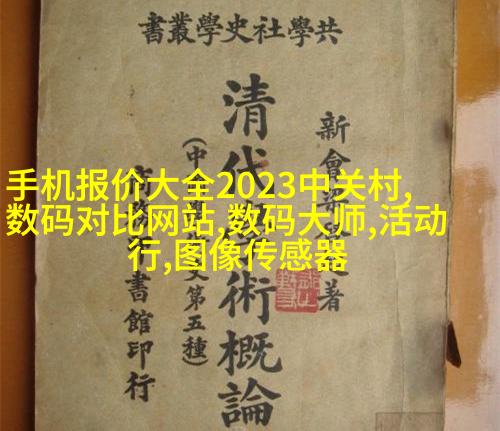 共學社史學叢書
手机报价大全2023中关村,
数码对比网站,数码大师,活动
行,图像传感器
新會著
清代術概論
(中第五種)
書館印行